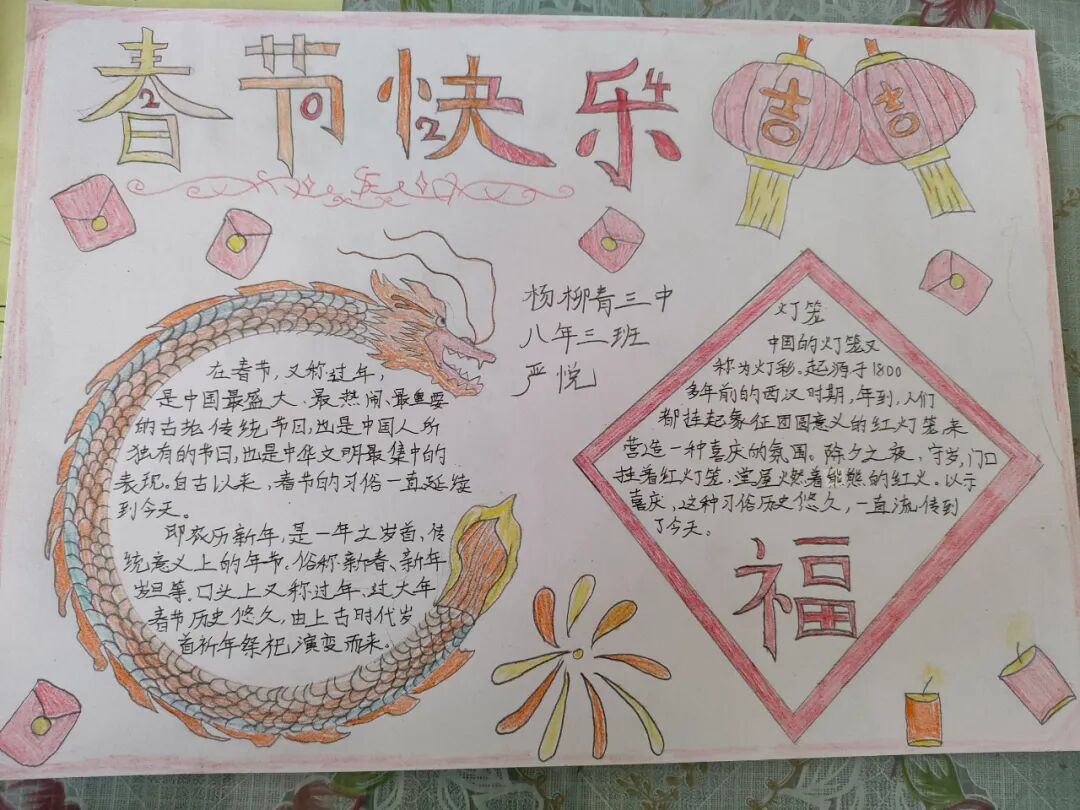 春节快乐
2024
吉吉
杨柳青三中
八年三班
严悦
在春节,又称过年,
是中国最盛大、最热闹、最重要
的古老传统节日,也是中国人所
独有的节日,也是中华文明最集中的
表现。自古以来,春节的习俗一直延续
到今天。
即农历新年,是一年之岁首、传
统意义上的年节。俗称新春、新年
岁旦等。口头上又称过年、过大年
春节历史悠久,由上古时代岁
首祈年祭祀演变而来。
灯笼
中国的灯笼又
称为灯彩。起源于1800
多年前的西汉时期,年到,人们
都挂起象征团圆意义的红灯笼,来
营造一种喜庆的氛围。除夕之夜,守岁,门口
挂着红灯笼,堂屋燃着熊熊的红火。以示
喜庆,这种习俗历史悠久,一直流传到
了今天。
福